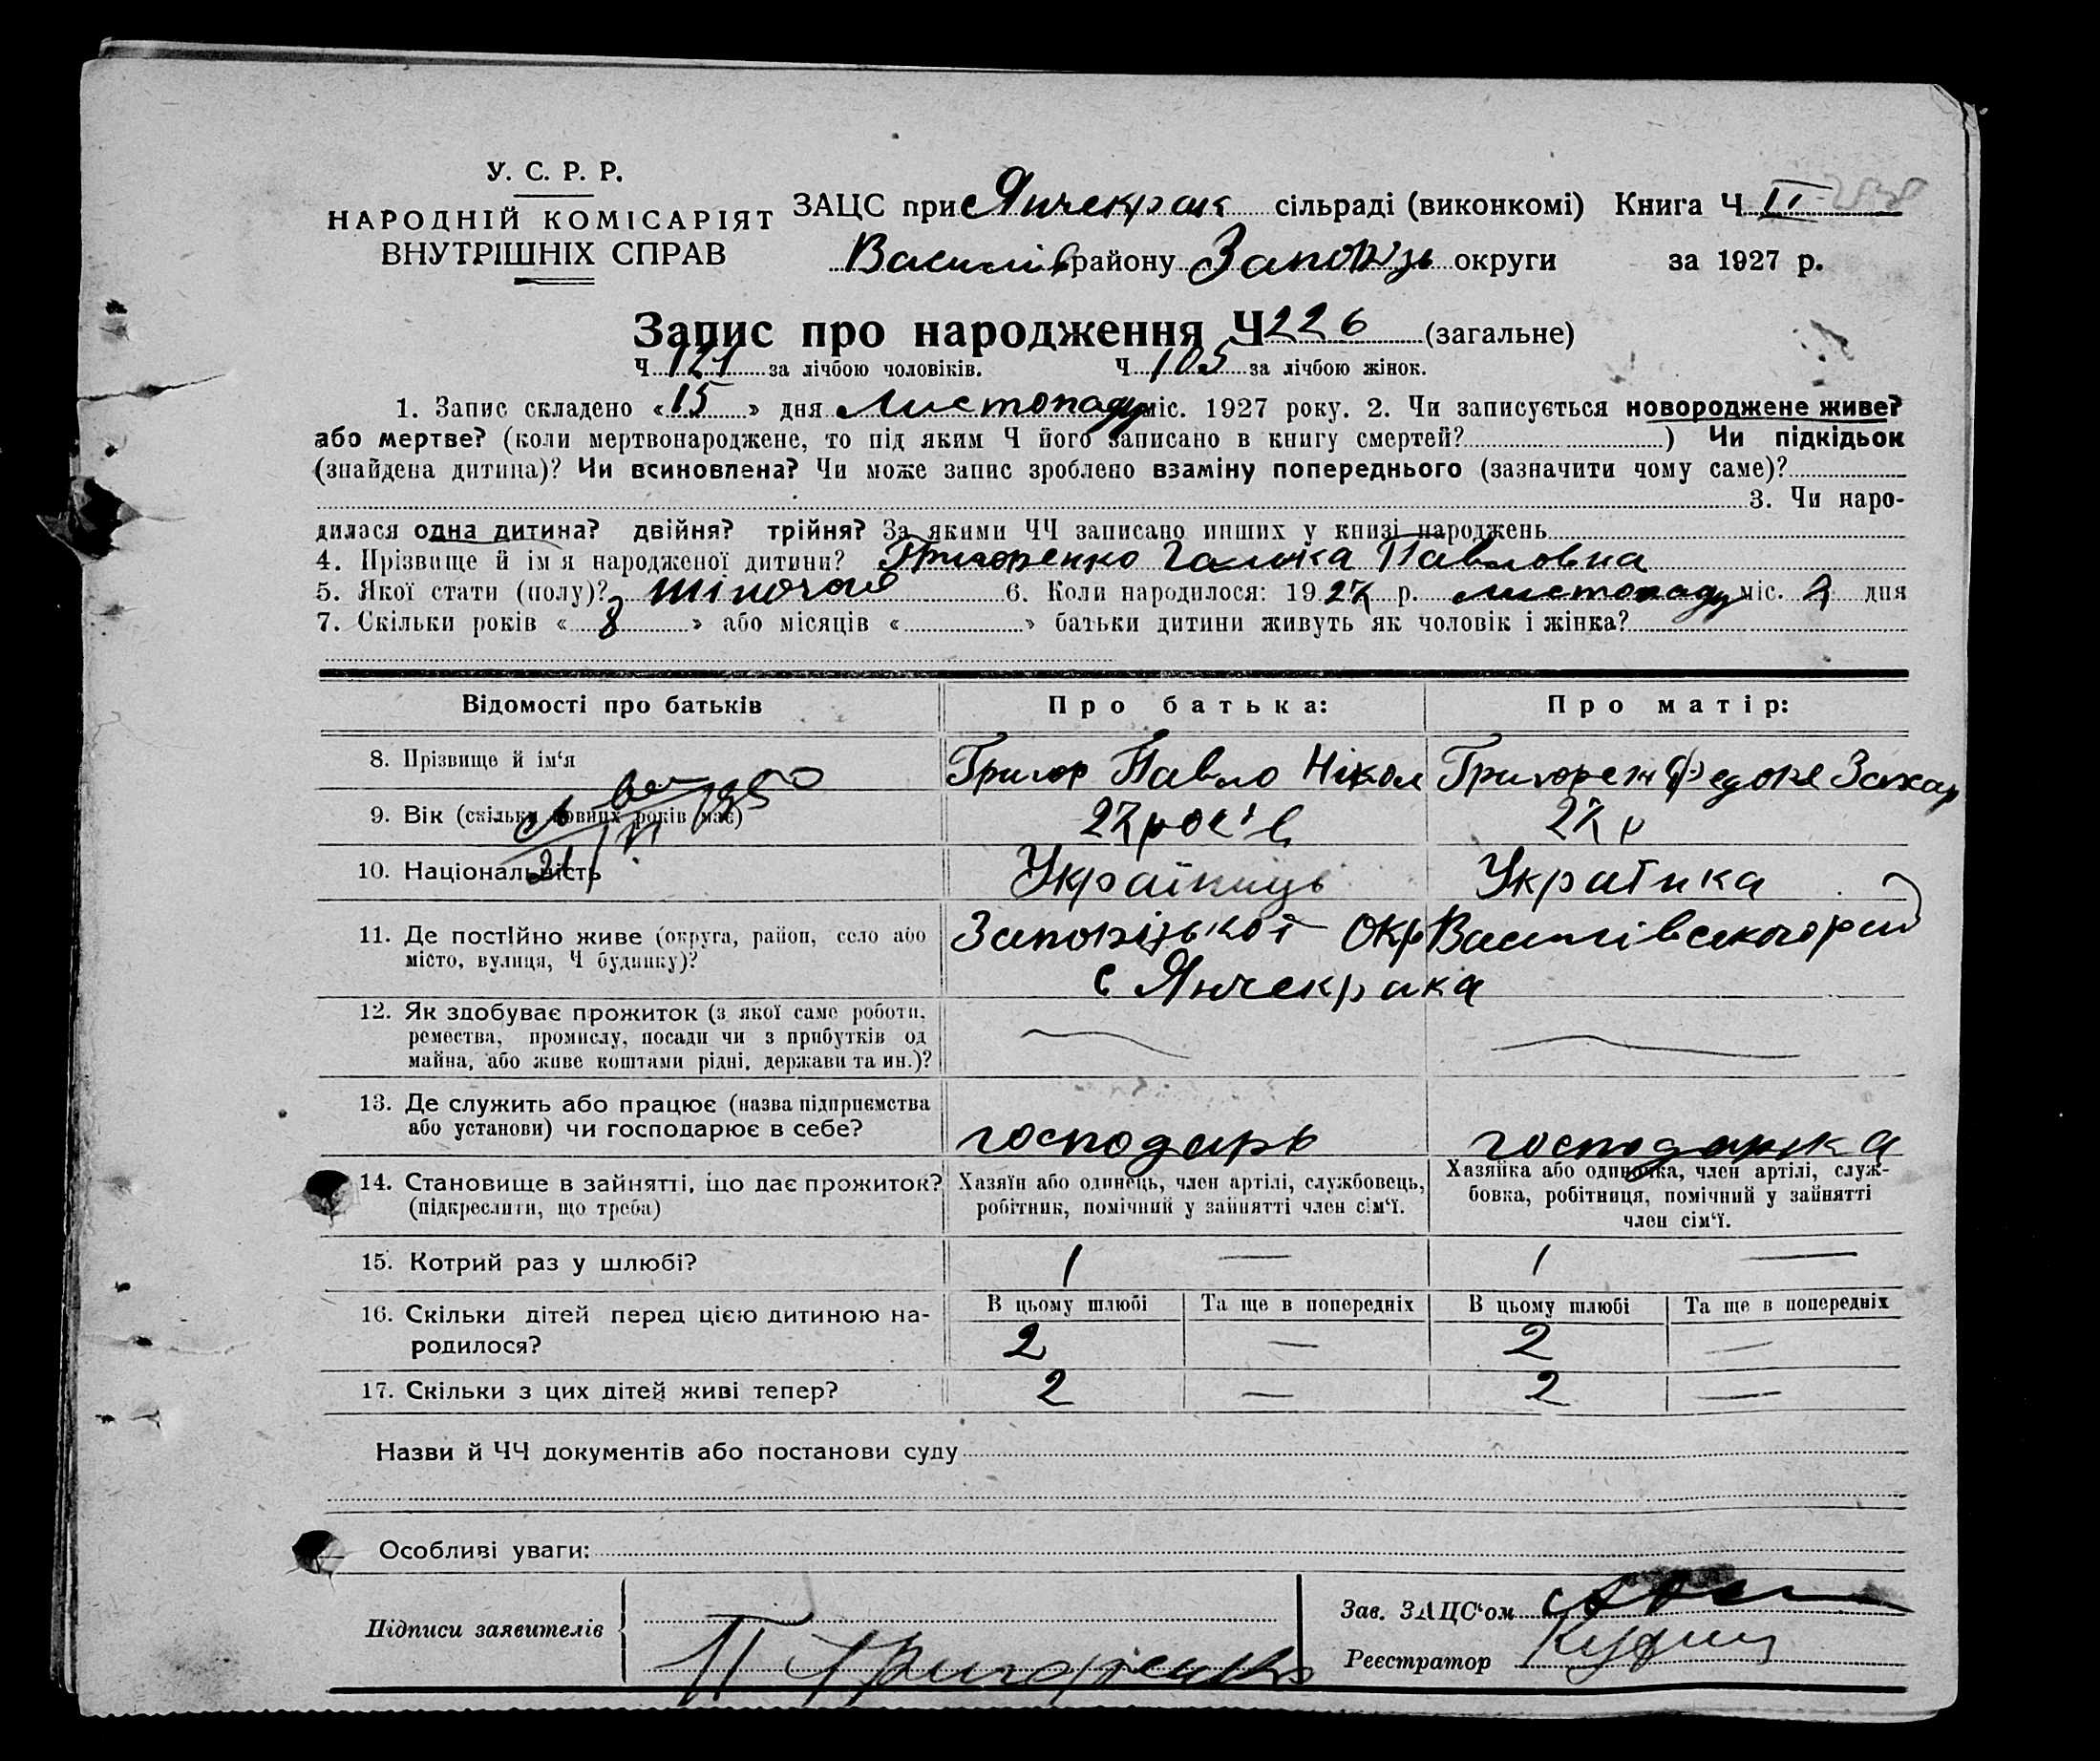 У. С. Р. Р.
НАРОДНІЙ КОМІСАРІЯТ
ВНУТРІШНІХ СПРАВ
ЗАЦС при Янчекрак сільраді (виконкомі) Книга Ч II
Василів району Запоріз округи за 1927 р.
Запис про народження Ч 226 (загальне)
Ч 121 за лічбою чоловіків. Ч 105 за лічбою жінок.
1. Запис складено «15» дня Листопаду міс. 1927 року. 2. Чи записується новороджене живе?
або мертве? (коли мертвонароджене, то під яким Ч його записано в книгу смертей? ) Чи підкідьок
(знайдена дитина)? Чи всиновлена? Чи може запис зроблено взаміну попереднього (зазначити чому саме)?
3. Чи наро-
дилася одна дитина? двійня? трійня? За якими ЧЧ записано инших у книзі народжень
4. Прізвище й ім'я народженої дитини? Григоренко Галина Павловна
5. Якої стати (полу)? жіночої 6. Коли народилося: 1927 р. листопаду міс. 2 дня
7. Скільки років «8» або місяців « » батьки дитини живуть як чоловік і жінка?
Відомості про батьків Про батька: Про матір:
8. Прізвище й ім'я Григор Павло Нікол Григорен Федоня Захар
9. Вік (скільки повних років має) 27 років 27 р
10. Національність Українць Українка
11. Де постійно живе (округа, район, село або
місто, вулиця, Ч будинку)?
Запорізької окр Василівського рай
с Янчекрака
12. Як здобуває прожиток (з якої саме роботи,
ремества, промислу, посади чи з прибутків од
майна, або живе коштами рідні, держави та ин.)?
13. Де служить або працює (назва підприємства
або установи) чи господарює в себе?
господарь господарка
14. Становище в зайнятті, що дає прожиток?
(підкреслити, що треба)
Хазяїн або одинець, член артілі, службовець,
робітник, помічний у зайнятті член сім'ї.
Хазяйка або одиночка, член артілі, служ-
бовка, робітниця, помічний у зайнятті
член сім'ї.
15. Котрий раз у шлюбі? 1 — 1 —
16. Скільки дітей перед цією дитиною на-
родилося?
В цьому шлюбі Та ще в попередніх В цьому шлюбі Та ще в попередніх
2 — 2 —
17. Скільки з цих дітей живі тепер? 2 — 2 —
Назви й ЧЧ документів або постанови суду
Особливі уваги:
Підписи заявителів
П Григоренко
Зав. ЗАЦС'ом
Реєстратор